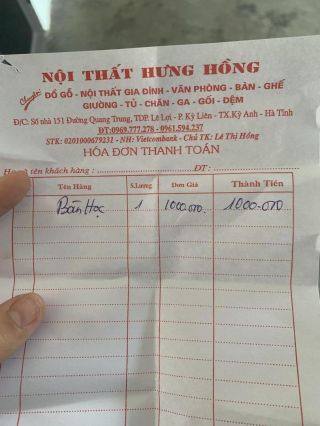 NỘI THẤT HƯNG HỒNG
Chuyên:
ĐỒ GỖ - NỘI THẤT GIA ĐÌNH - VĂN PHÒNG - BÀN - GHẾ
GIƯỜNG - TỦ - CHĂN - GA - GỐI - ĐỆM
Đ/C: Số nhà 151 Đường Quang Trung, TDP. Lê Lợi - P. Kỳ Liên - TX.Kỳ Anh - Hà Tĩnh
ĐT:0969.777.278 - 0961.594.237
STK: 0201000679231 - NH: Vietcombank - Chủ TK: Lê Thị Hồng
HÓA ĐƠN THANH TOÁN
Họ và tên khách hàng : ĐT :
Tên Hàng S.Lượng Đơn Giá Thành Tiền
Bàn Học 1 1000.000. 1000.000